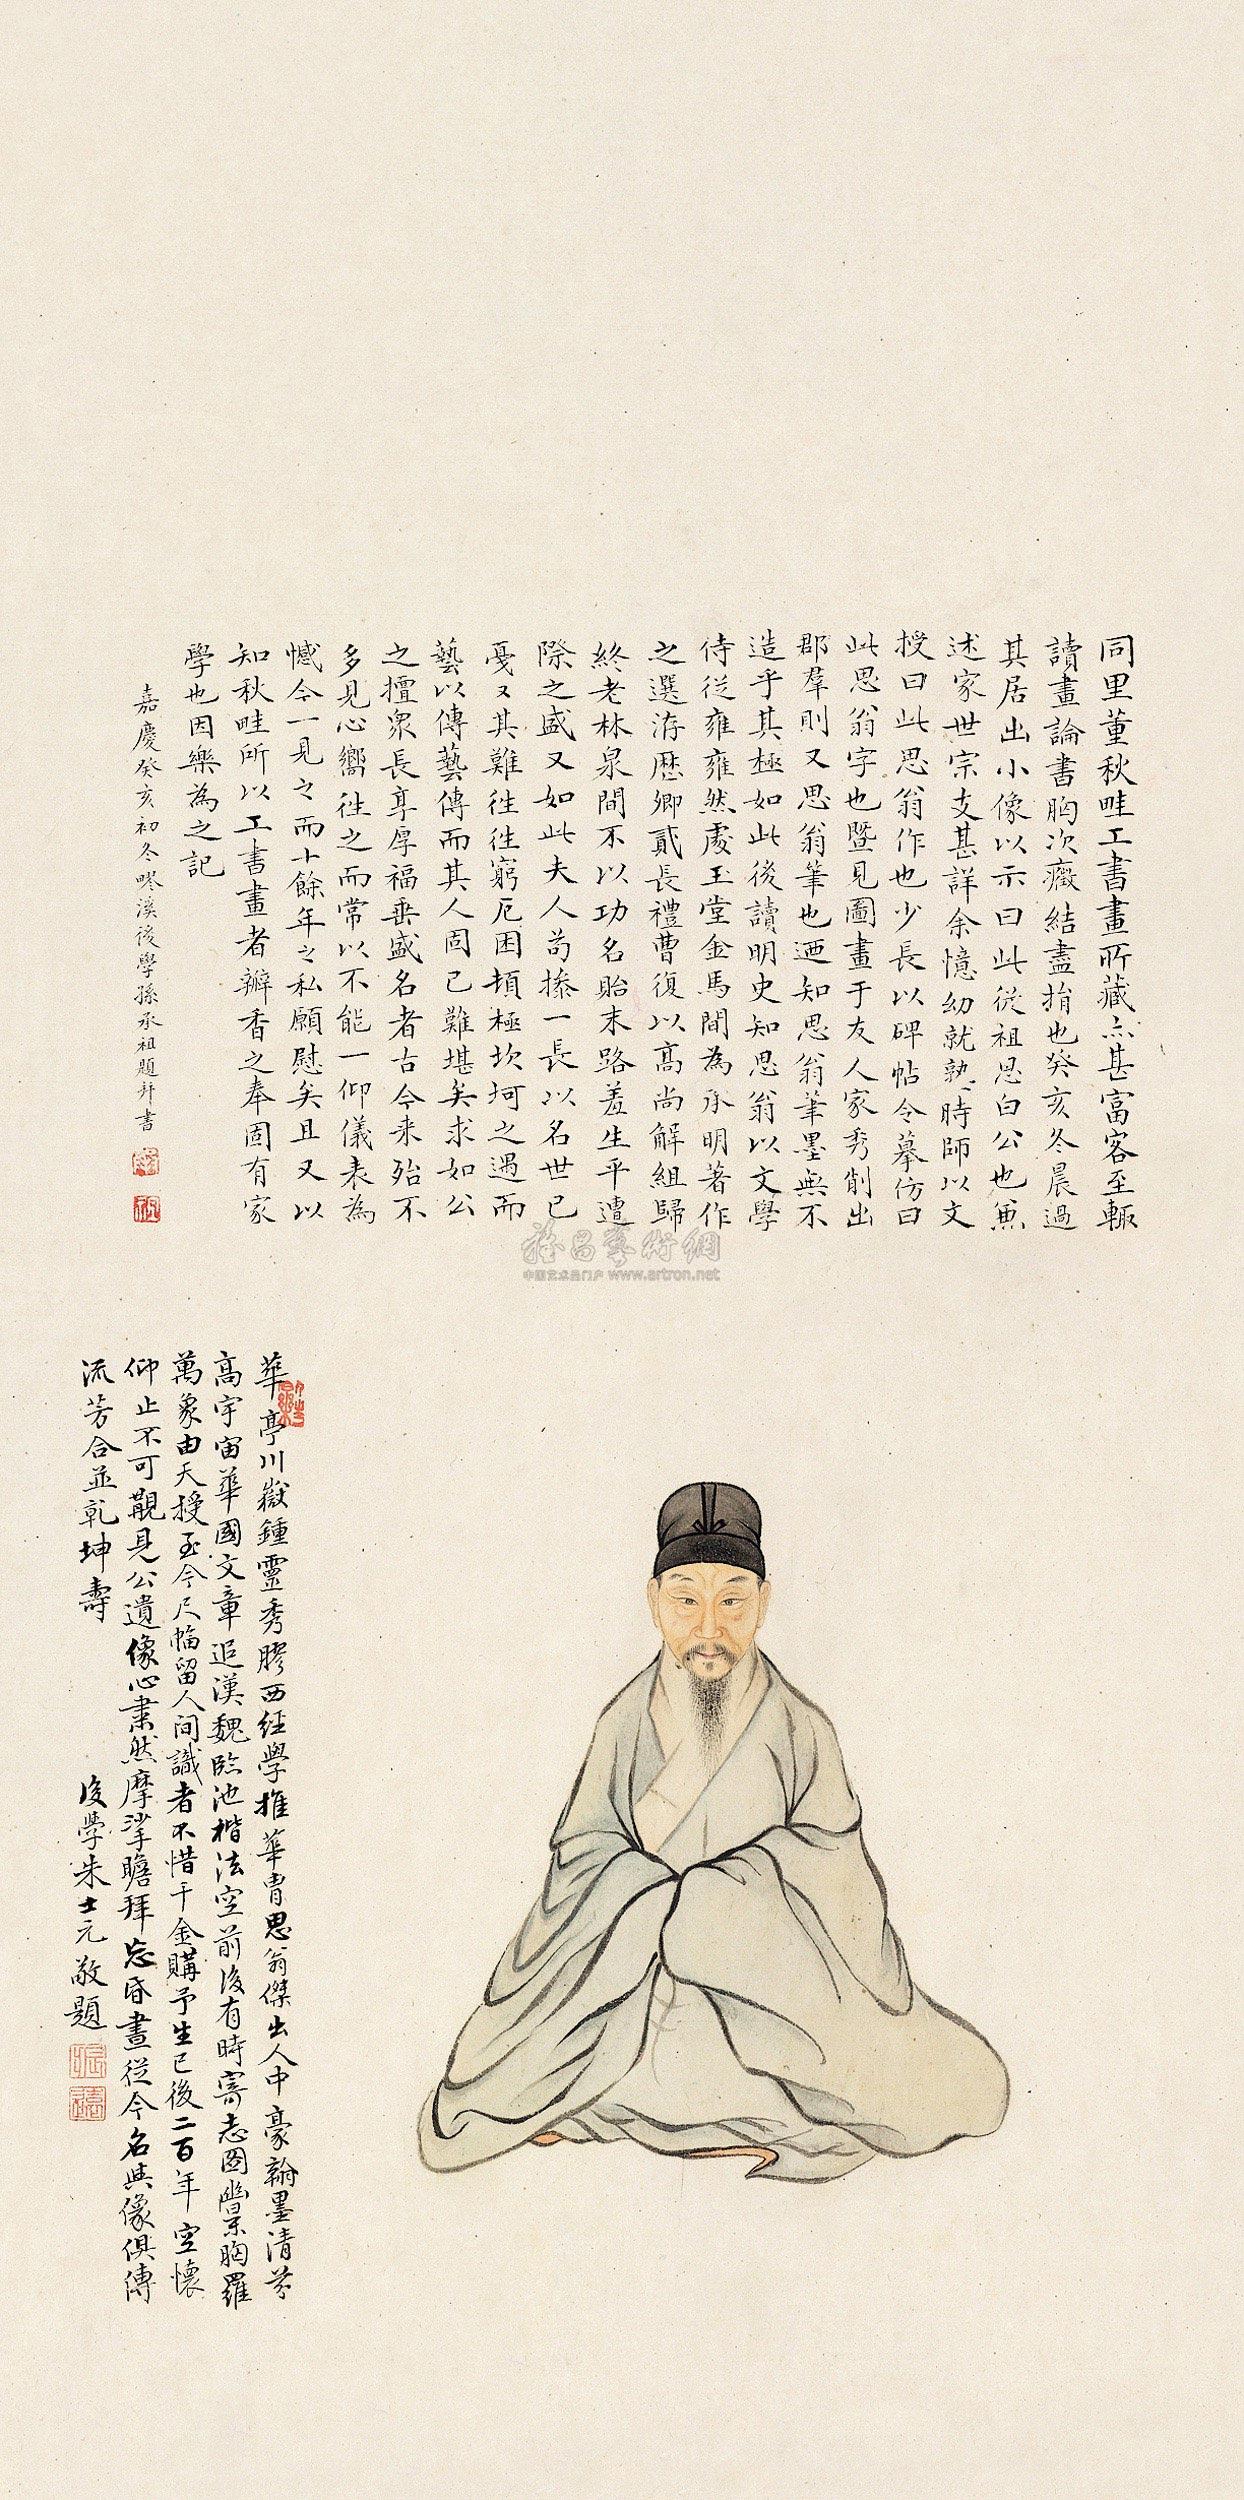 同里董秋畦工書畫所藏亦甚富客至輒
讀畫論書胸次癥結盡捐也癸亥冬晨過
其居出小像以示曰此從祖思白公也兼
述家世宗支甚詳余憶幼就塾時師以文
授曰此思翁作也少長以碑帖令摹仿曰
此思翁字也暨見圖畫于友人家秀削出
郡羣則又思翁筆也迺知思翁筆墨無不
造乎其極如此後讀明史知思翁以文學
侍從雍雍然處玉堂金馬間為承明著作
之選洊歷卿貳長禮曹復以高尚解組歸
終老林泉間不以功名貽末路羞生平遭
際之盛又如此夫人苟操一長以名世已
戛戛其難往往窮厄困頓極坎坷之遇而
藝以傳藝傳而其人固已難堪矣求如公
之擅衆長享厚福垂盛名者古今來殆不
多見心嚮往之而常以不能一仰儀表為
憾今一見之而十餘年之私願慰矣且又以
知秋畦所以工書畫者瓣香之奉固有家
學也因樂為之記
嘉慶癸亥初冬嘐溪後學孫承祖題并書
華亭川嶽鍾靈秀膠西經學推華胄思翁傑出人中豪翰墨清芬
高宇宙華國文章追漢魏臨池楷法空前後有時寄志圖幽景胸羅
萬象由天授至今尺幅留人間識者不惜千金購予生已後二百年空懷
仰止不可覯見公遺像心肅然摩挲瞻拜忘昏晝從今名與像俱傳
流芳合並乾坤壽
後學朱士元敬題
雅昌藝術網
中国艺术品门户 www.artron.net